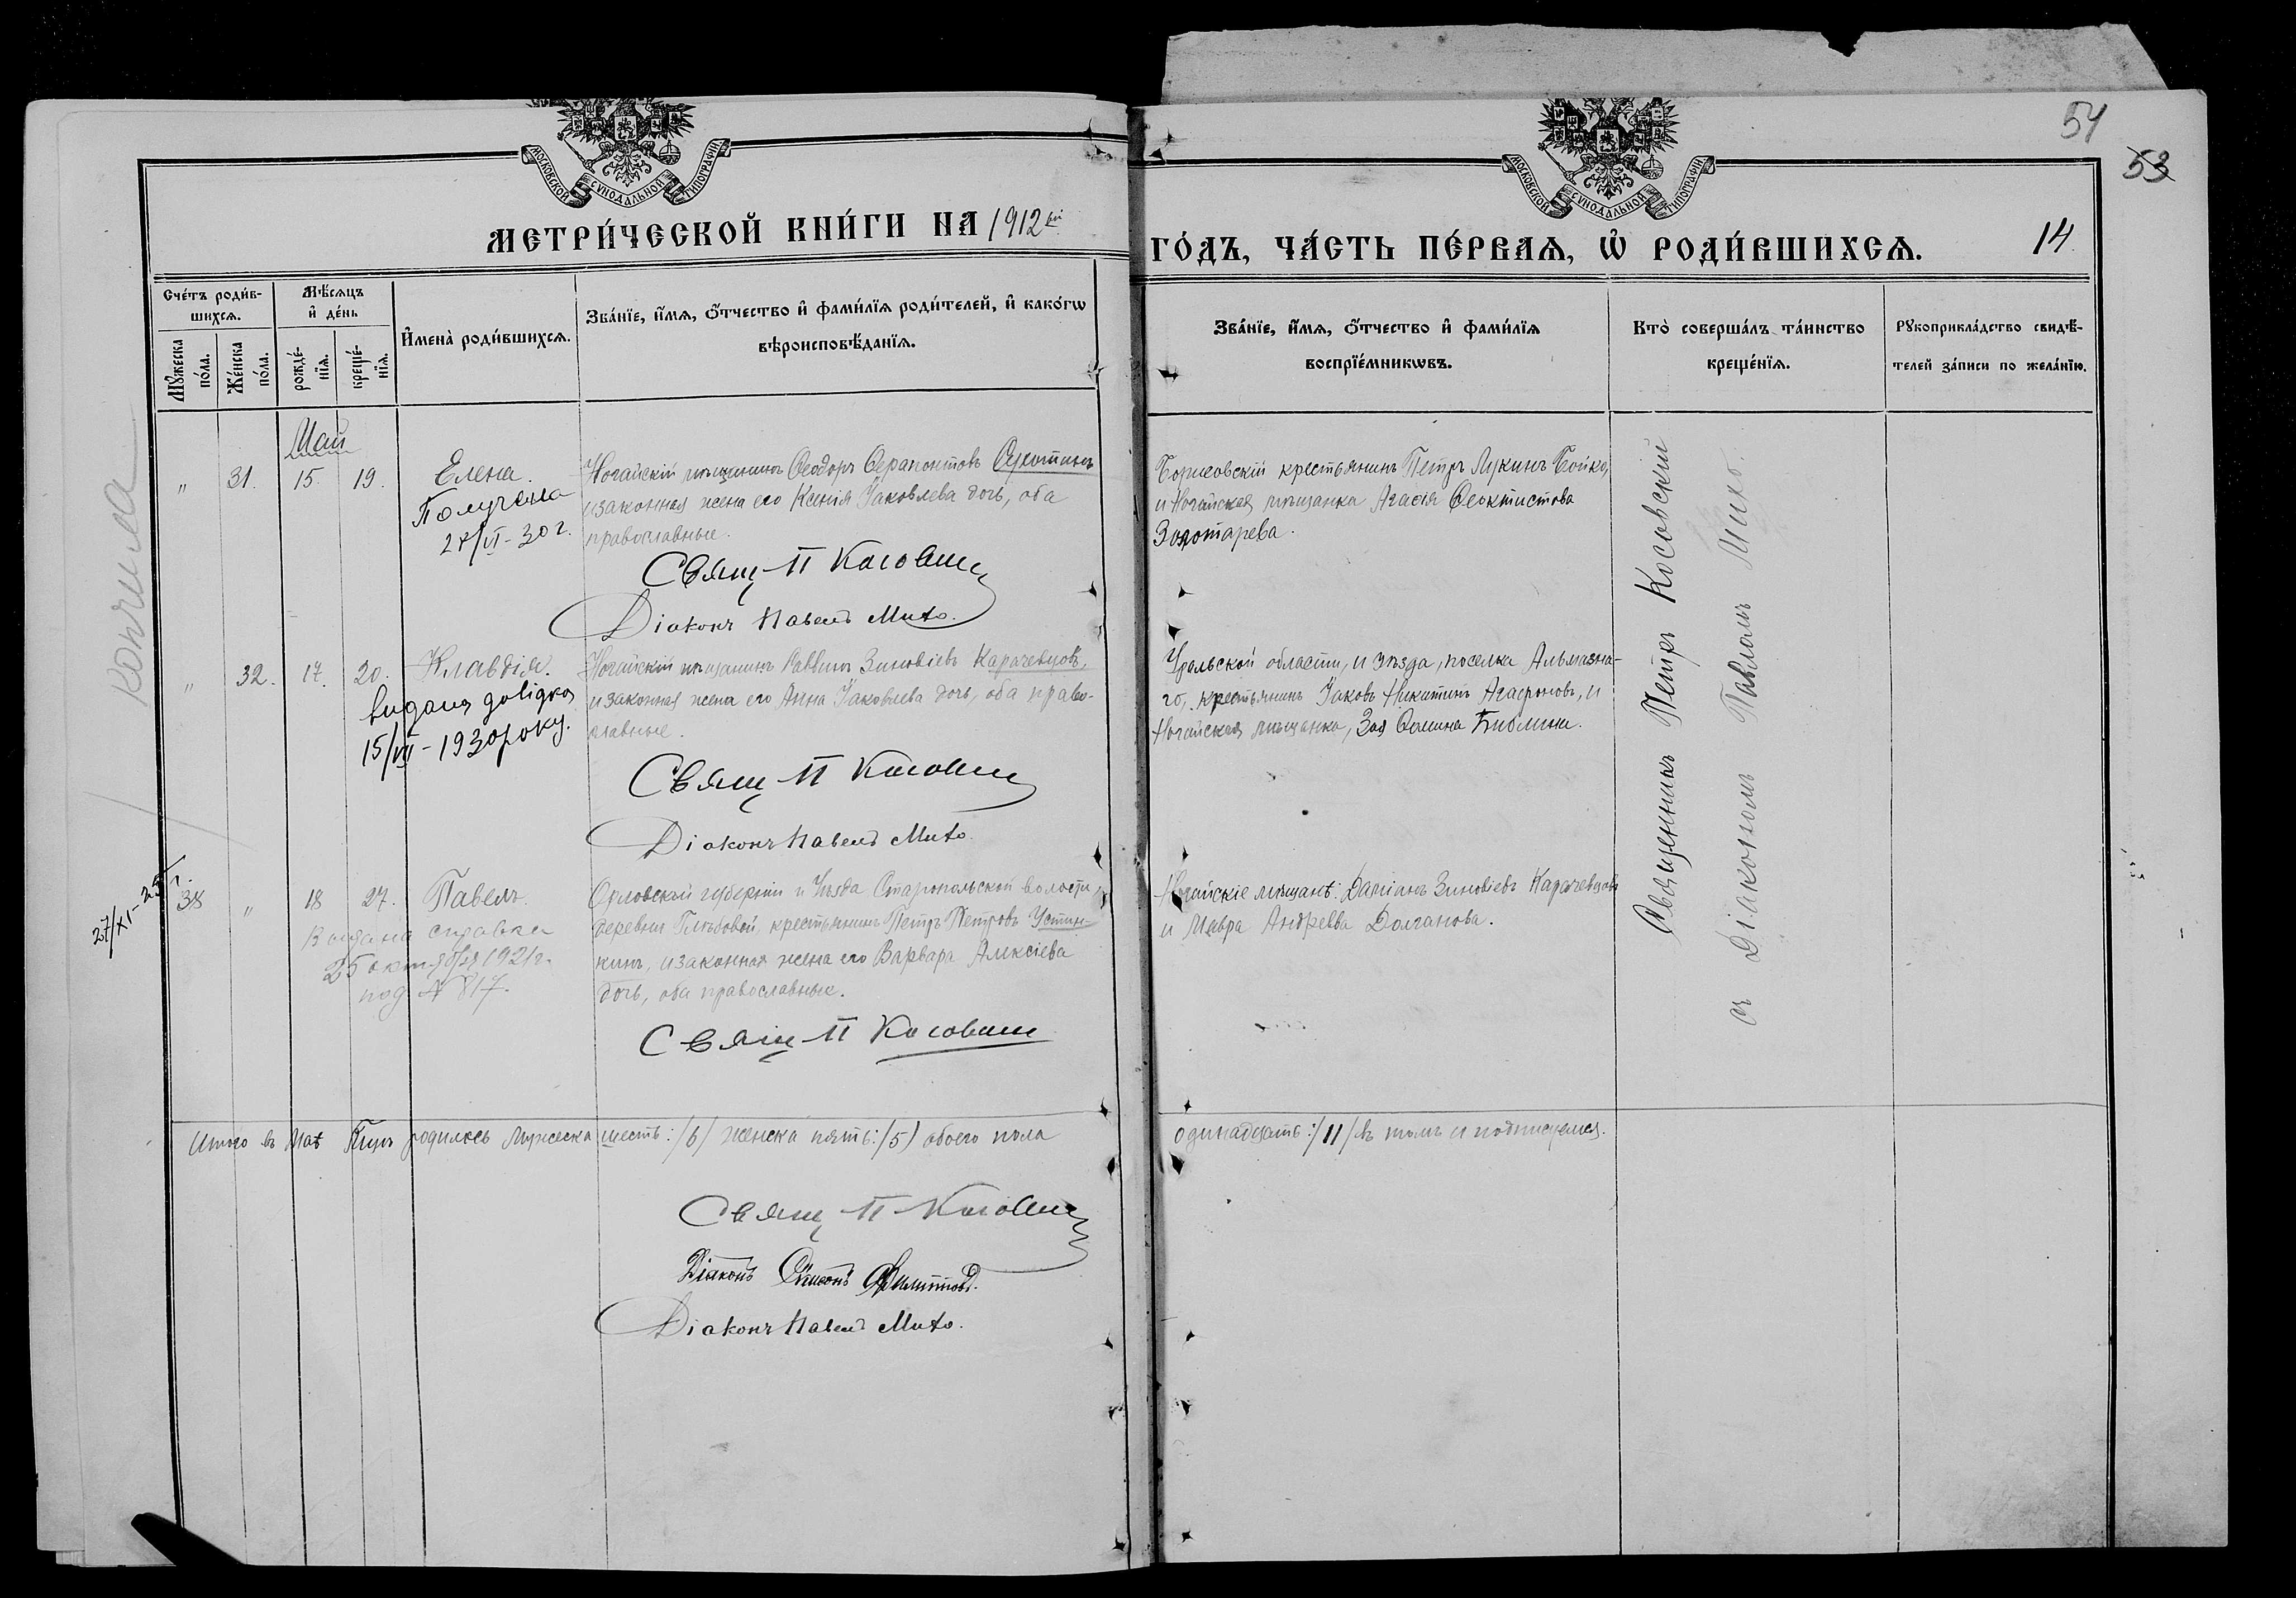 54
53
МОСКОВСКОЙ СѴНОДАЛЬНОЙ ТИПОГРАФІИ
МОСКОВСКОЙ СѴНОДАЛЬНОЙ ТИПОГРАФІИ
МЕТРИ́ЧЕСКОЙ КНИ́ГИ НА 1912й
ГО́ДЪ, ЧА́СТЬ ПЕ́РВАѦ, Ѡ РОДИ́ВШИХСѦ.
14.
Сче́тъ роди́в-
шихсѧ.
Мꙋ́жеска
по́ла.
Же́нска
по́ла.
Мѣ́сѧцъ
и҆ де́нь
рожде́-
нїѧ.
креще́-
нїѧ.
И҆мена̀ роди́вшихсѧ.
Зва́нїе, и҆́мѧ, ѻ҆́тчество и҆ фами́лїѧ роди́телей, и҆ како́гѡ
вѣроисповѣ́данїѧ.
Зва́нїе, и҆́мѧ, ѻ҆́тчество и҆ фами́лїѧ
воспрїе́мникѡвъ.
Кто̀ соверша́лъ та́инство
креще́нїѧ.
Рꙋкоприкла́дство свидѣ́-
телей за́писи по жела́нїю.
Май
" 31. 15. 19. Елена.
Получена
27/VI-30 г.
Ногайскій мѣщанинъ Ѳеодоръ Ѳерапонтовъ
и законная жена его Ксенія Іаковлева дочь, оба
православные.
Свящ П Косовски
Діаконъ Павелъ Михо.
Борисовскій крестьянинъ Петръ Лукинъ Бойко,
и Ногайская мѣщанка Агаѳія Ѳеоктистова
Золотарева.
" 32. 17. 20. Клавдія.
Видана довідка
15/VII-1930 року.
Ногайскій мѣщанинъ Саввинъ Зиновіевъ Карачевцовъ,
и законная жена его Анна Іаковлева дочь, оба право-
славные.
Свящ П Косовски
Діаконъ Павелъ Михо
Уральской области, и уѣзда, поселка Альмазна-
го, крестьянинъ Іаковъ Никитинъ Агафоновъ, и
Ногайская мѣщанка, Зоя Ѳомина
27/XI-25 г.
38 " 18 27. Павелъ.
Выдана справка
25 октября 1921 г.
под № 817.
Орловской губерніи и Уѣзда Старопольской волости,
деревни Глѣбовой, крестьянинъ Петръ Петровъ Устин-
кинъ, и законная жена его Варвара Алексіева
дочь, оба православные.
Свящ П Косовски
Ногайскіе мѣщане: Даміанъ Зиновіевъ Карачевцовъ
и Мавра Андреева Долганова.
Священникъ Петръ Косовскій
съ Діакономъ Павломъ Михо.
Итого въ Маѣ родилось Мужеска шесть:/6/ женска пять:/5/ обоего пола
одинадцать:/11/ въ томъ и подписуемся.
Свящ П Косовски
Діаконъ Симеонъ Филипповъ.
Діаконъ Павелъ Михо.